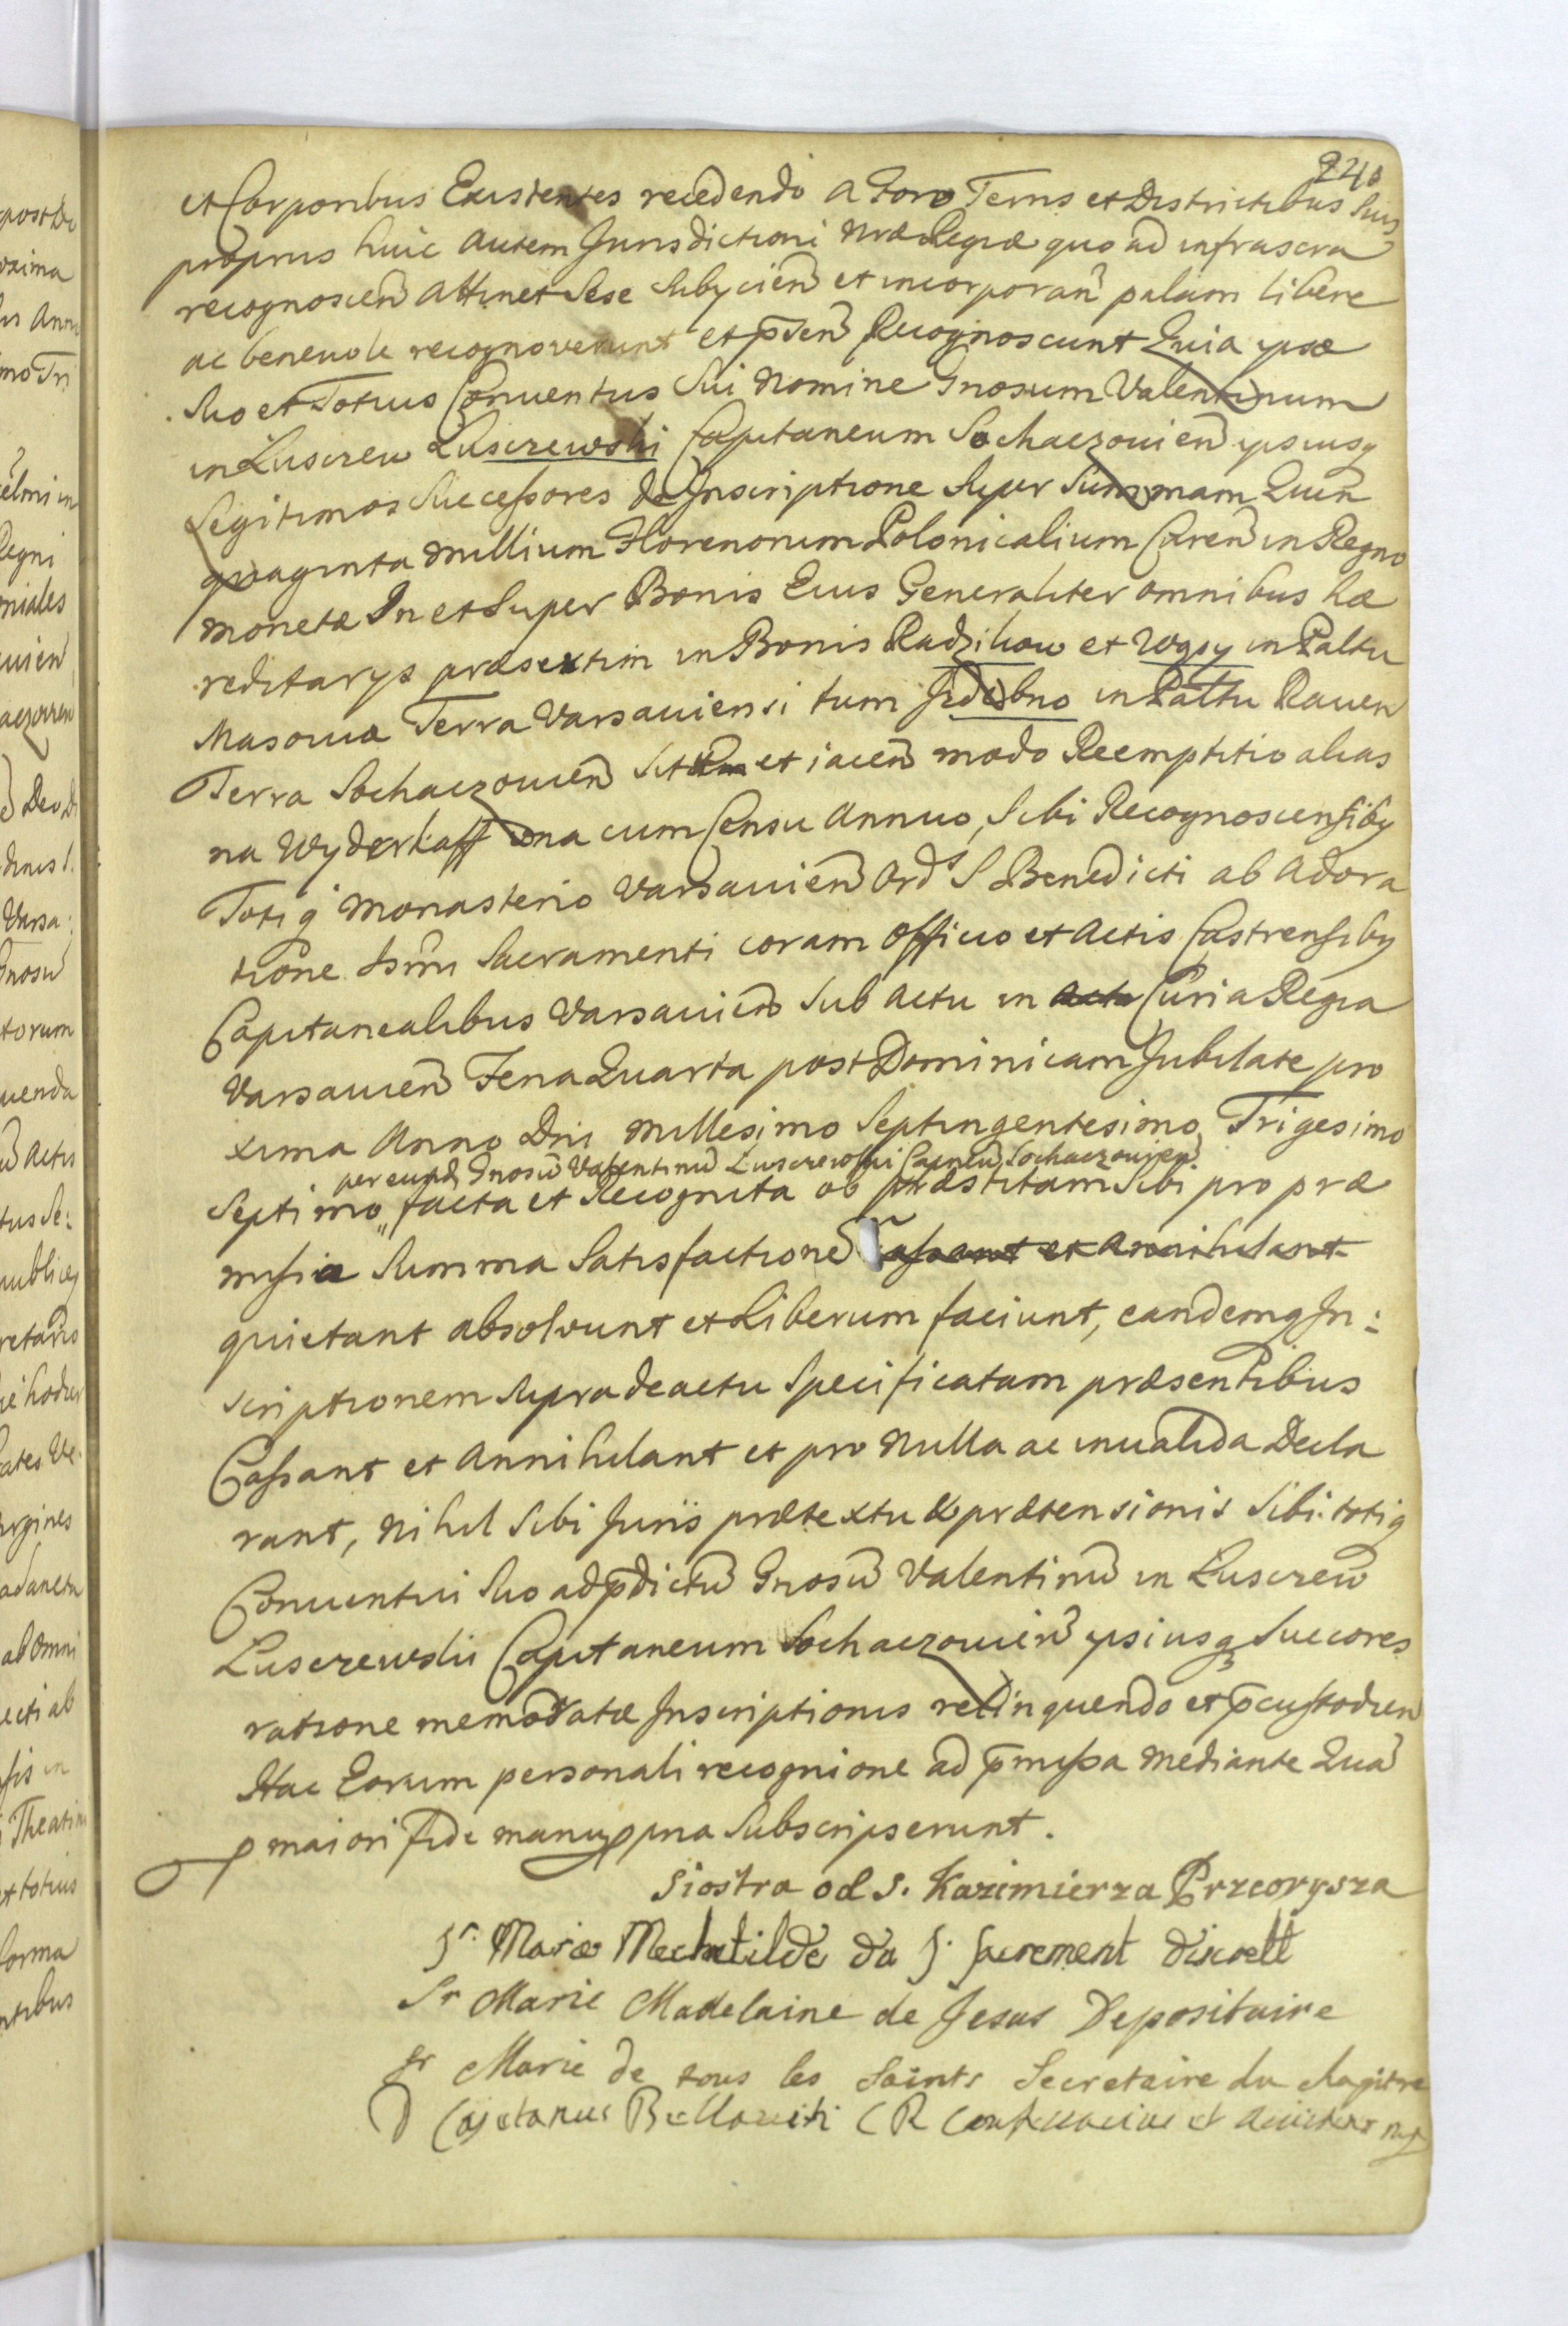 240
et Corporibus Existentes recedendo a Foro Terris et Districtibus suis
proprijs huic autem Jurisdictioni nrae Regiae quo ad infrascra
recognoscen̄ attinet sese subycien̄ et incorporan̄ palam libere
ac beneuole recognoverunt et p̄sen̄ Recognoscunt Quia ipsae
suo et Totius Conuentus sui nomine Gnosum Valentinum
in Luscrew Luscrewski Capitaneum Sochaczouien̄ ipsiusq
Legitimos Successores de Inscriptione super summam Quin
quaginta millium Florenorum Polonicalium Curen̄ in Regno
monetae In et super Bonis Eius Generaliter omnibus hae
reditarys praesertim in Bonis Radzikow et Wąsy in Paltu
Masouiae Terra Varsauiensi tum in Paltu Rauen
Terra Sochaczouien̄ et iacen̄ modo Reemptitio alias
na Wyderkaff una cum Censu annuo, sibi Recognoscensiby
Totiq Monasterio Varsauien̄ Ord S Benedicti ab adora
tione Ssmi Sacramenti coram officio et actis Castrensiby
Capitanealibus Varsauien̄ sub actu in acta Curia Regia
Varsauien̄ Feria Quarta post Dominicam Jubilate pro
xima Anno Dni millesimo septingentesimo Trigesimo
per eund Gnosū Valentinū Luscrewski Capneū Sochaczouien
septimo facta et Recognita ob praestitam sibi pro prae
missa summa satisfactione Cassant et annihilant
quietant absolvunt et Liberum faciunt, eandemq In:
scriptionem supra de actu specificatam praesentibus
Cassant et annihilant et pro nulla ac inualida Decla
rant, nihil sibi Juris praetextu & praetensionis sibi totiq
Conuentui suo ad p̄dictū Gnosū Valentinū in Luscrew
Luscrewski Capitaneum Sochaczouien̄ ipsiusq Succores
ratione memoratae Inscriptionis relinquendo et p̄custodien
Hac Earum personali recognione ad p̄missa mediante Qua
p maiori fide manu ppria subscripserunt.
Siostra od S. Kazimierza Przeorysza
Sr. Marie Mechtilde du S. Sacrement discrett
Sr Marie Madelaine de Jesus Depositaire
Sr Marie de tous les Saints Secretaire du chapitre
D Cajetanus C R Confessarius et